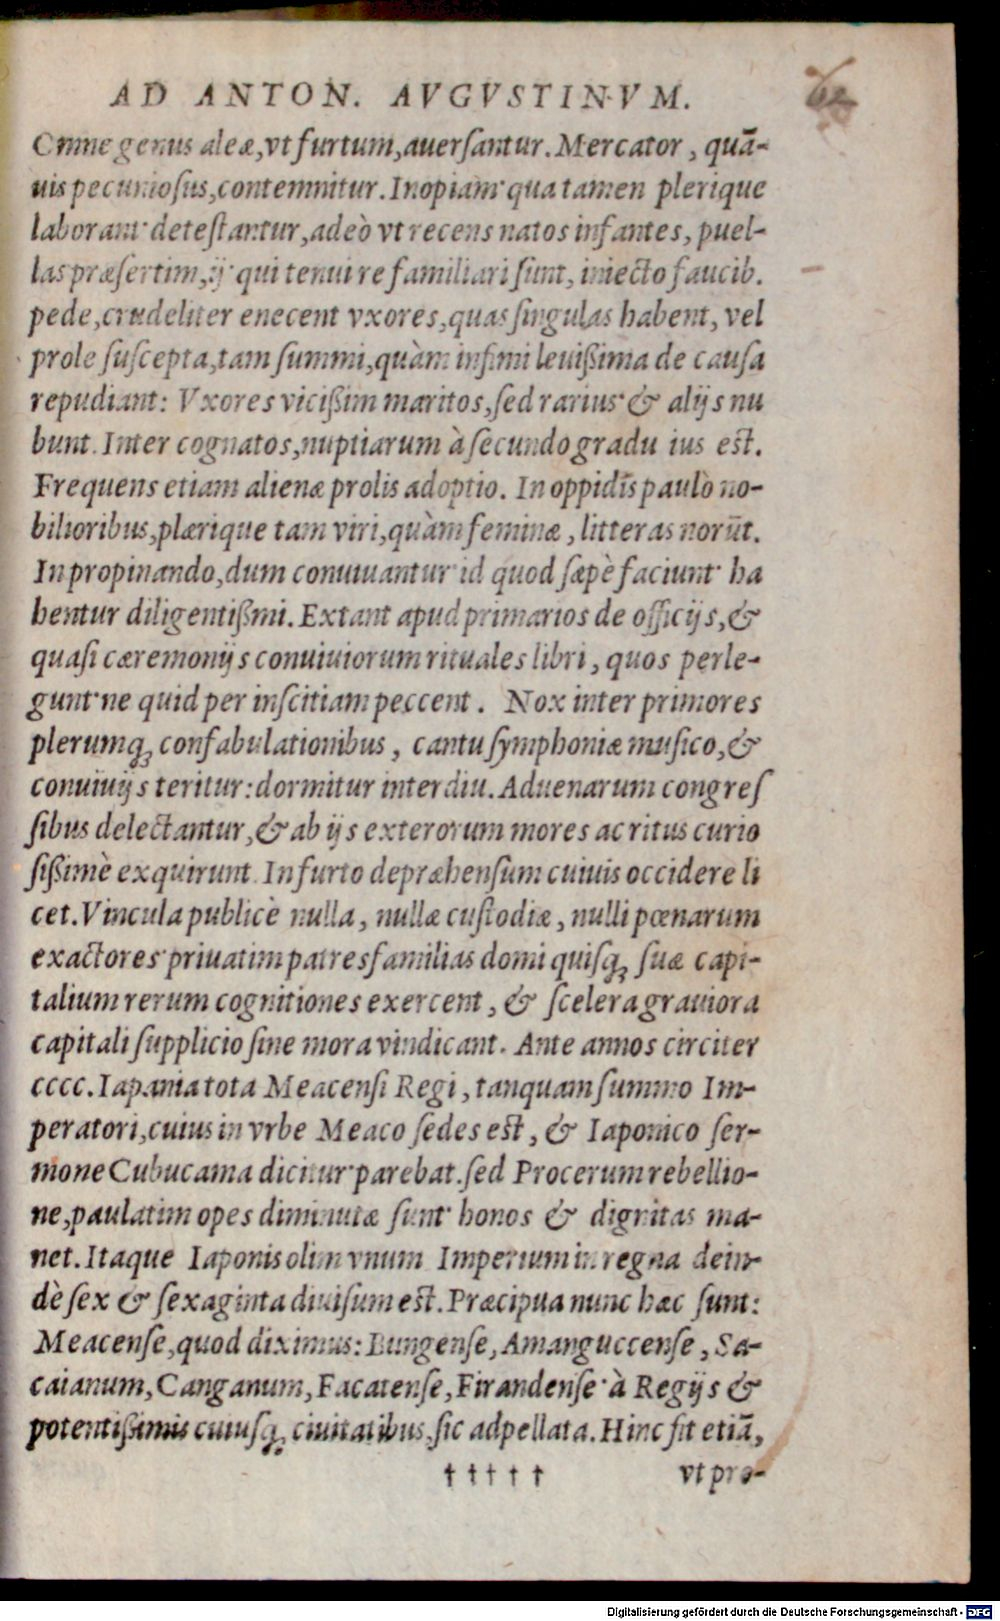 AD ANTON. AVGVSTINVM.
Omne genus aleæ, vt furtum, auerſantur. Mercator, quā-
uis pecunioſus, contemnitur. Inopiam qua tamen plerique
laborant deteſtantur, adeò vt recens natos infantes, puel-
las præſertim, ij qui tenui re familiari ſunt, iniecto faucib.
pede, crudeliter enecent vxores, quas ſingulas habent, vel
prole ſuſcepta, tam ſummi, quàm infimi leuißima de cauſa
repudiant: Vxores vicißim maritos, ſed rarius & alijs nu
bunt. Inter cognatos, nuptiarum à ſecundo gradu ius eſt.
Frequens etiam alienæ prolis adoptio. In oppidis paulò no-
bilioribus, plærique tam viri, quàm feminæ, litteras norūt.
In propinando, dum conuiuantur id quod ſæpè faciunt ha
bentur diligentißmi. Extant apud primarios de officijs, &
quaſi cæremonijs conuiuiorum rituales libri, quos perle-
gunt ne quid per inſcitiam peccent. Nox inter primores
plerumq; confabulationibus, cantu ſymphoniæ muſico, &
conuiuijs teritur: dormitur interdiu. Aduenarum congreſ
ſibus delectantur, & ab ijs exterorum mores ac ritus curio
ſißimè exquirunt. In furto depræhenſum cuiuis occidere li
cet. Vincula publicè nulla, nullæ cuſtodiæ, nulli pœnarum
exactores priuatim patresfamilias domi quiſq; ſuæ capi-
talium rerum cognitiones exercent, & ſcelera grauiora
capitali ſupplicio ſine mora vindicant. Ante annos circiter
cccc. Iapania tota Meacenſi Regi, tanquam ſummo Im-
peratori, cuius in vrbe Meaco ſedes eſt, & Iaponico ſer-
mone Cubucama dicitur parebat. ſed Procerum rebellio-
ne, paulatim opes diminutæ ſunt honos & dignitas ma-
net. Itaque Iaponis olim vnum Imperium in regna dein-
dè ſex & ſexaginta diuiſum eſt. Præcipua nunc hæc ſunt:
Meacenſe, quod diximus: Bungenſe, Amanguccenſe, Sa-
caianum, Canganum, Facatenſe, Firandenſe à Regijs &
potentißimis cuiuſq; ciuitatibus, ſic adpellata. Hinc fit etiā,
† † † † † vt pro-
Digitalisierung gefördert durch die Deutsche Forschungsgemeinschaft - DFG